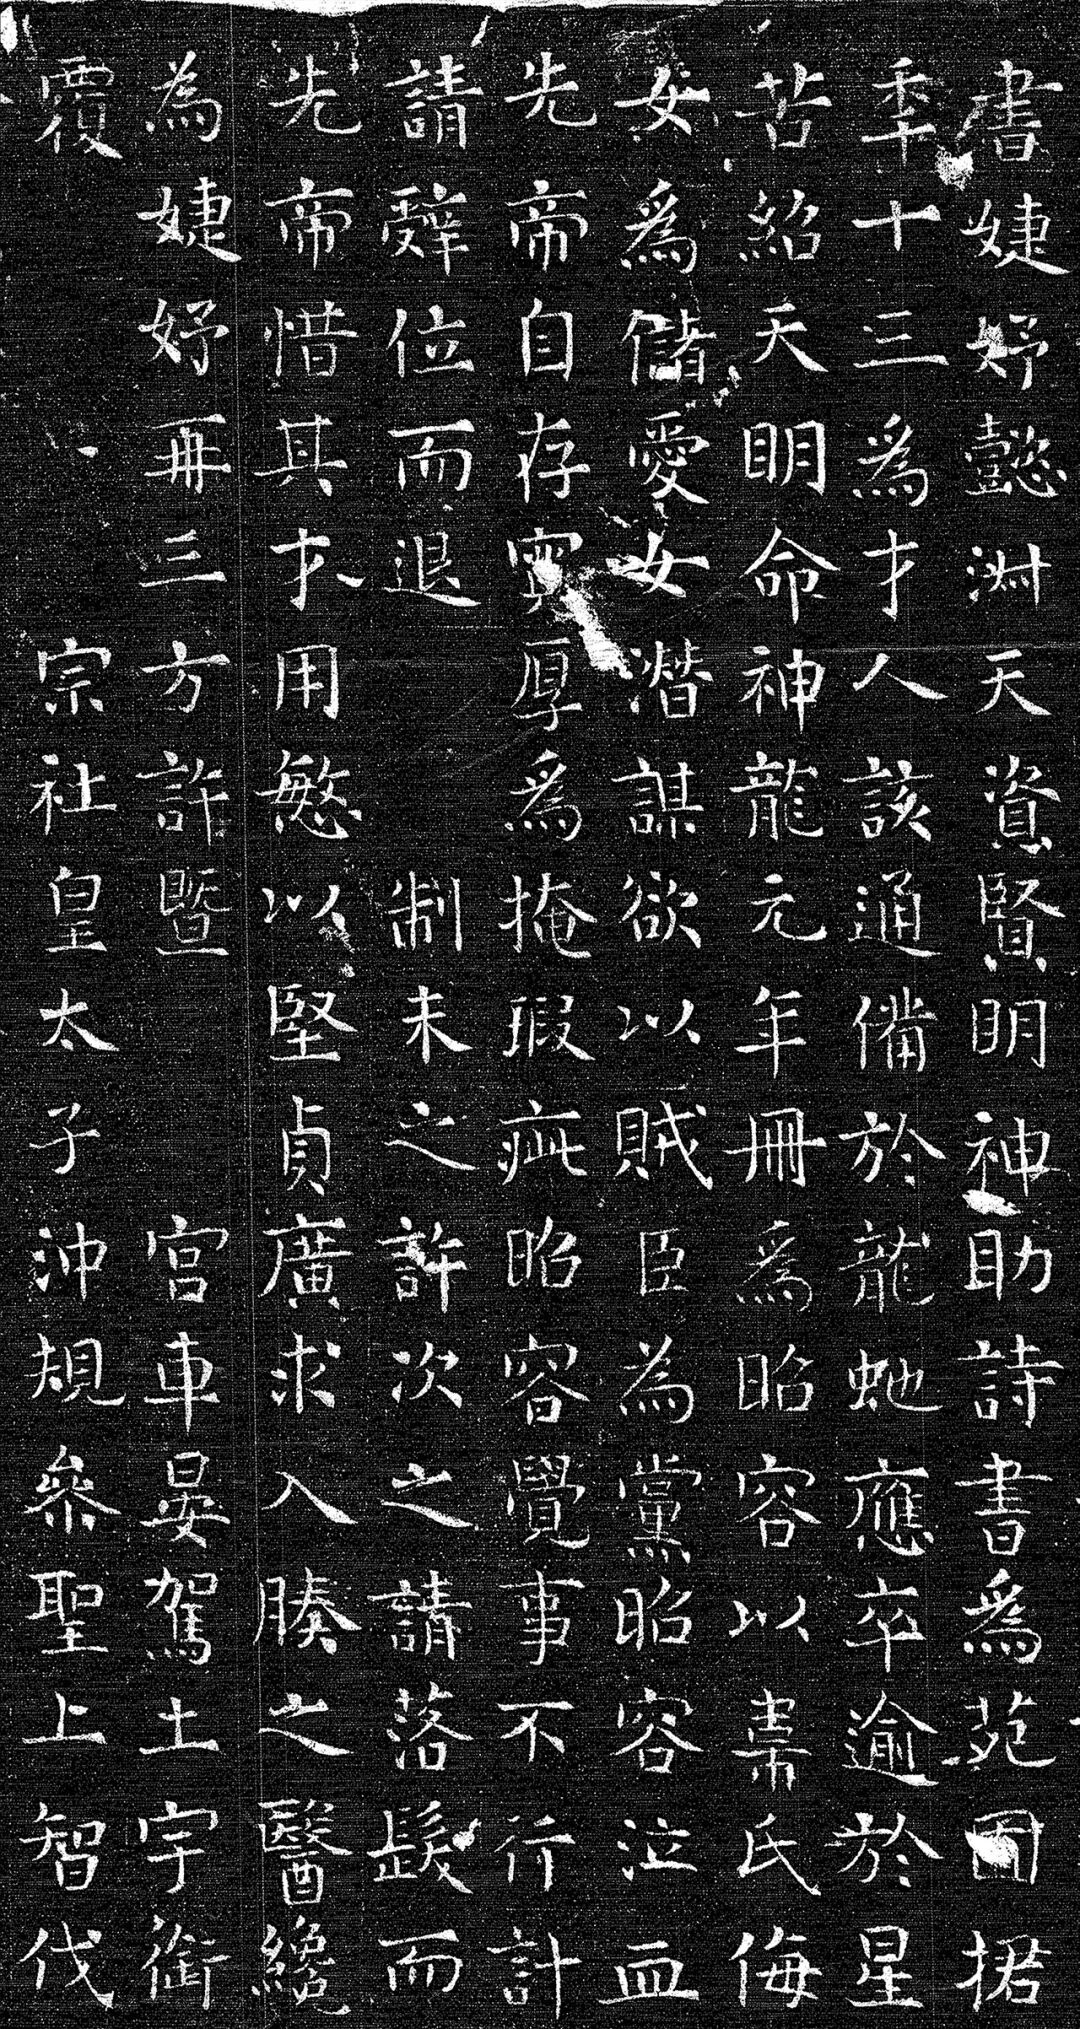 書婕妤懿淑天資賢明神助詩書爲苑囿捃
年十三爲才人該通備於龍蛇應卒逾於星
苦紹天明命神龍元年冊爲昭容以韋氏侮
女爲儲愛女潛謀欲以賊臣為黨昭容泣血
先帝自存寬厚爲掩瑕疵昭容覺事不行計
請辭位而退　制未之許次之請落髮而
先帝惜其才用慜以堅貞廣求入腠之醫纔
為婕妤再三方許暨　宮車晏駕土宇銜
覆　宗社皇太子沖規參聖上智伐